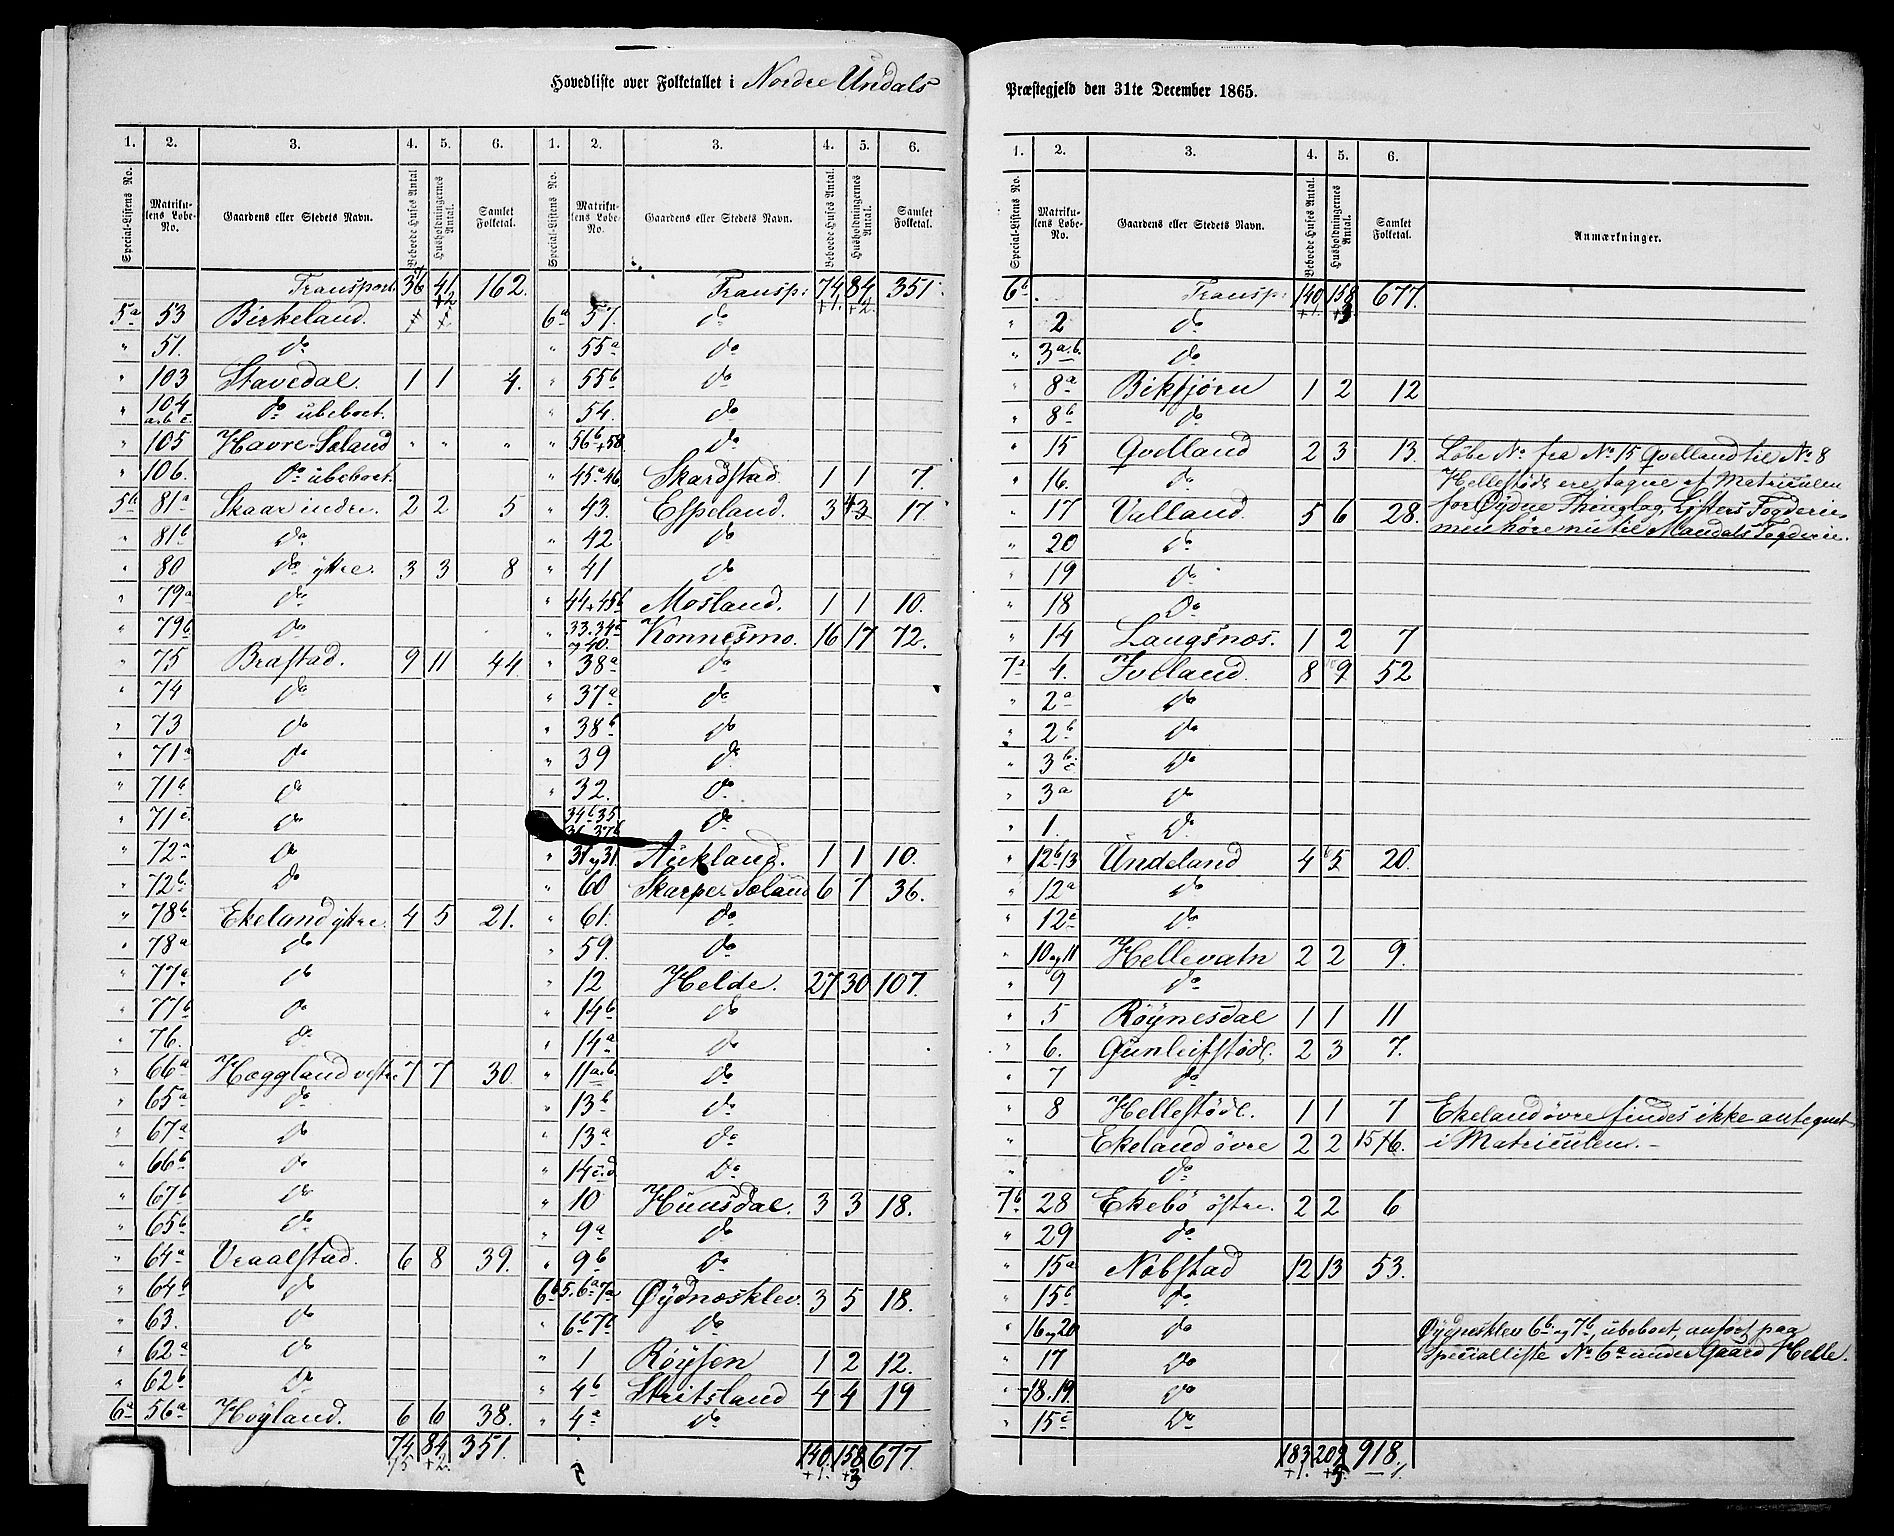 Hovedliste over Folketallet i Nordre Undals Præstegjeld den 31te December 1865.
1. 2. 3. 4. 5. 6.
Special-Listens No. Matrikulens Løbe-No. Gaardens eller Stedets Navn. Beboede Huses Antal. Husholdningernes Antal. Samlet Folketal.
Transport 36 41 +2 162.
5a 53 Birkeland.
" 51. do
" 103 Stavedal. 1 1 4.
" 104 a.b.c. do ubeboet.
" 105 Havre-Sœland " " "
" 106. do ubeboet.
5b 81a Skaar indre. 2 2 5
" 81b do
" 80 do ytre. 3 3 8
" 79a do
" 79b do
" 75 Brastad. 9 11 44.
" 74 do
" 73 do
" 71a do
" 71b do
" 71c do
" 72a do
" 72b do
" 78b Ekeland ytre. 4 5 21.
" 78a do
" 77a do
" 77b do
" 76. do
" 66a Hœggland vestre 7 7 30
" 65a do
" 67a do
" 66b do
" 67b do
" 65b do
" 64a Vraalstad. 6 8 39.
" 64b do
" 63. do
" 62a do
" 62b do
6a 56a Høyland. 6 6 38.
74 84 351.
75 +2
1. 2. 3. 4. 5. 6.
Special-Listens No. Matrikulens Løbe-No. Gaardens eller Stedets Navn. Beboede Huses Antal. Husholdningernes Antal. Samlet Folketal.
Transp: 74 +1. 84 +2. 351.
6a 57. do
" 55a do
" 55b do
" 54. do
" 56b+58. do
" 45a46. Skardstad. 1 1 7.
" 43. Espeland. 3 43 17
" 42 do
" 41 do
" 44+45b Mosland. 1 1 10.
" 33.34a 40. Konnesmo. 16 17 72.
" 38a do
" 37a do
" 38b do
" 39 do
" 32. do
34b35 31.37b do
" 31 Aukland. 1 1 10.
" 60 Skarpe Sœland 6 7 36.
" 61. do
" 59. do
" 12 Helde. 27 30 107.
" 14b do
" 14a do
" 11a.b. do
" 13b do
" 13a do
" 14c.d do
" 10 Hunsdal. 3 3 18.
" 9a do
" 9b do
6b 5.6a7a Øydnæsklev. 3 5 18.
" 6b7b do
" 1 Røysen 1 2 12.
" 4b Stritsland 4 4 19
" 4a do
140. 158 677.
+1. +3
1. 2. 3. 4. 5. 6.
Special-Listens No. Matrikulens Løbe-No. Gaardens eller Stedets Navn. Beboede Huses Antal. Husholdningernes Antal. Samlet Folketal. Anmærkninger.
6b Transp: 140 +1. 158 +3. 677.
" 2 do
" 3a.b. do
" 8a Bikfjörn 1 2 12
" 8b do
" 15 Qvelland 2 3 13. Løbe No fra No 15 Qvelland til No 8
" 16. do Hellestöde ere tagne af Matriculen
" 17 Valland. 5 6 28. for Øydne Thinglag, Listers Fogderie,
" 20 do men høre nu til Mandals Fogderie.
" 19 do
" 18 do
" 14 Langsnæs. 1 2 7
7a 4. Ivelland. 8 9 52
" 2a do
" 2b do
" 3b.c do
" 3a do
" 1. do
" 12b13 Undeland 4 5 20.
" 12a do
" 12c do
" 10 og 11 Hellevatn 2 2 9.
" 9 do
" 5 Röynesdal 1 1 11
" 6. Gunleifstödl. 2 3 7.
" 7 do
" 8 Hellestödl. 1 1 7 Ekeland øvre findes ikke antegnet
" Ekeland övre 2 2 15 16. i Matriculen.
" do
7b 28 Ekebö östre. 2 2 6
" 29 do
" 15a Nobstad 12 13 53.
" 15b do
" 16 og 20 do Øydnesklev 6b og 7b, ubeboet, anfört paa
" 17 do Specialliste No 6a under Gaard Helle.
" 18.19. do
" 15c do
183 209 918.
+1. +5 –1.